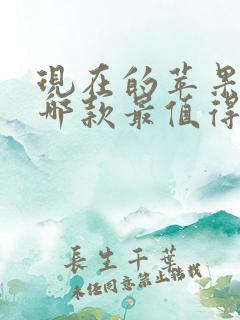 现在的苹果
哪款最值得
长生千叶
未经同意禁止搭载